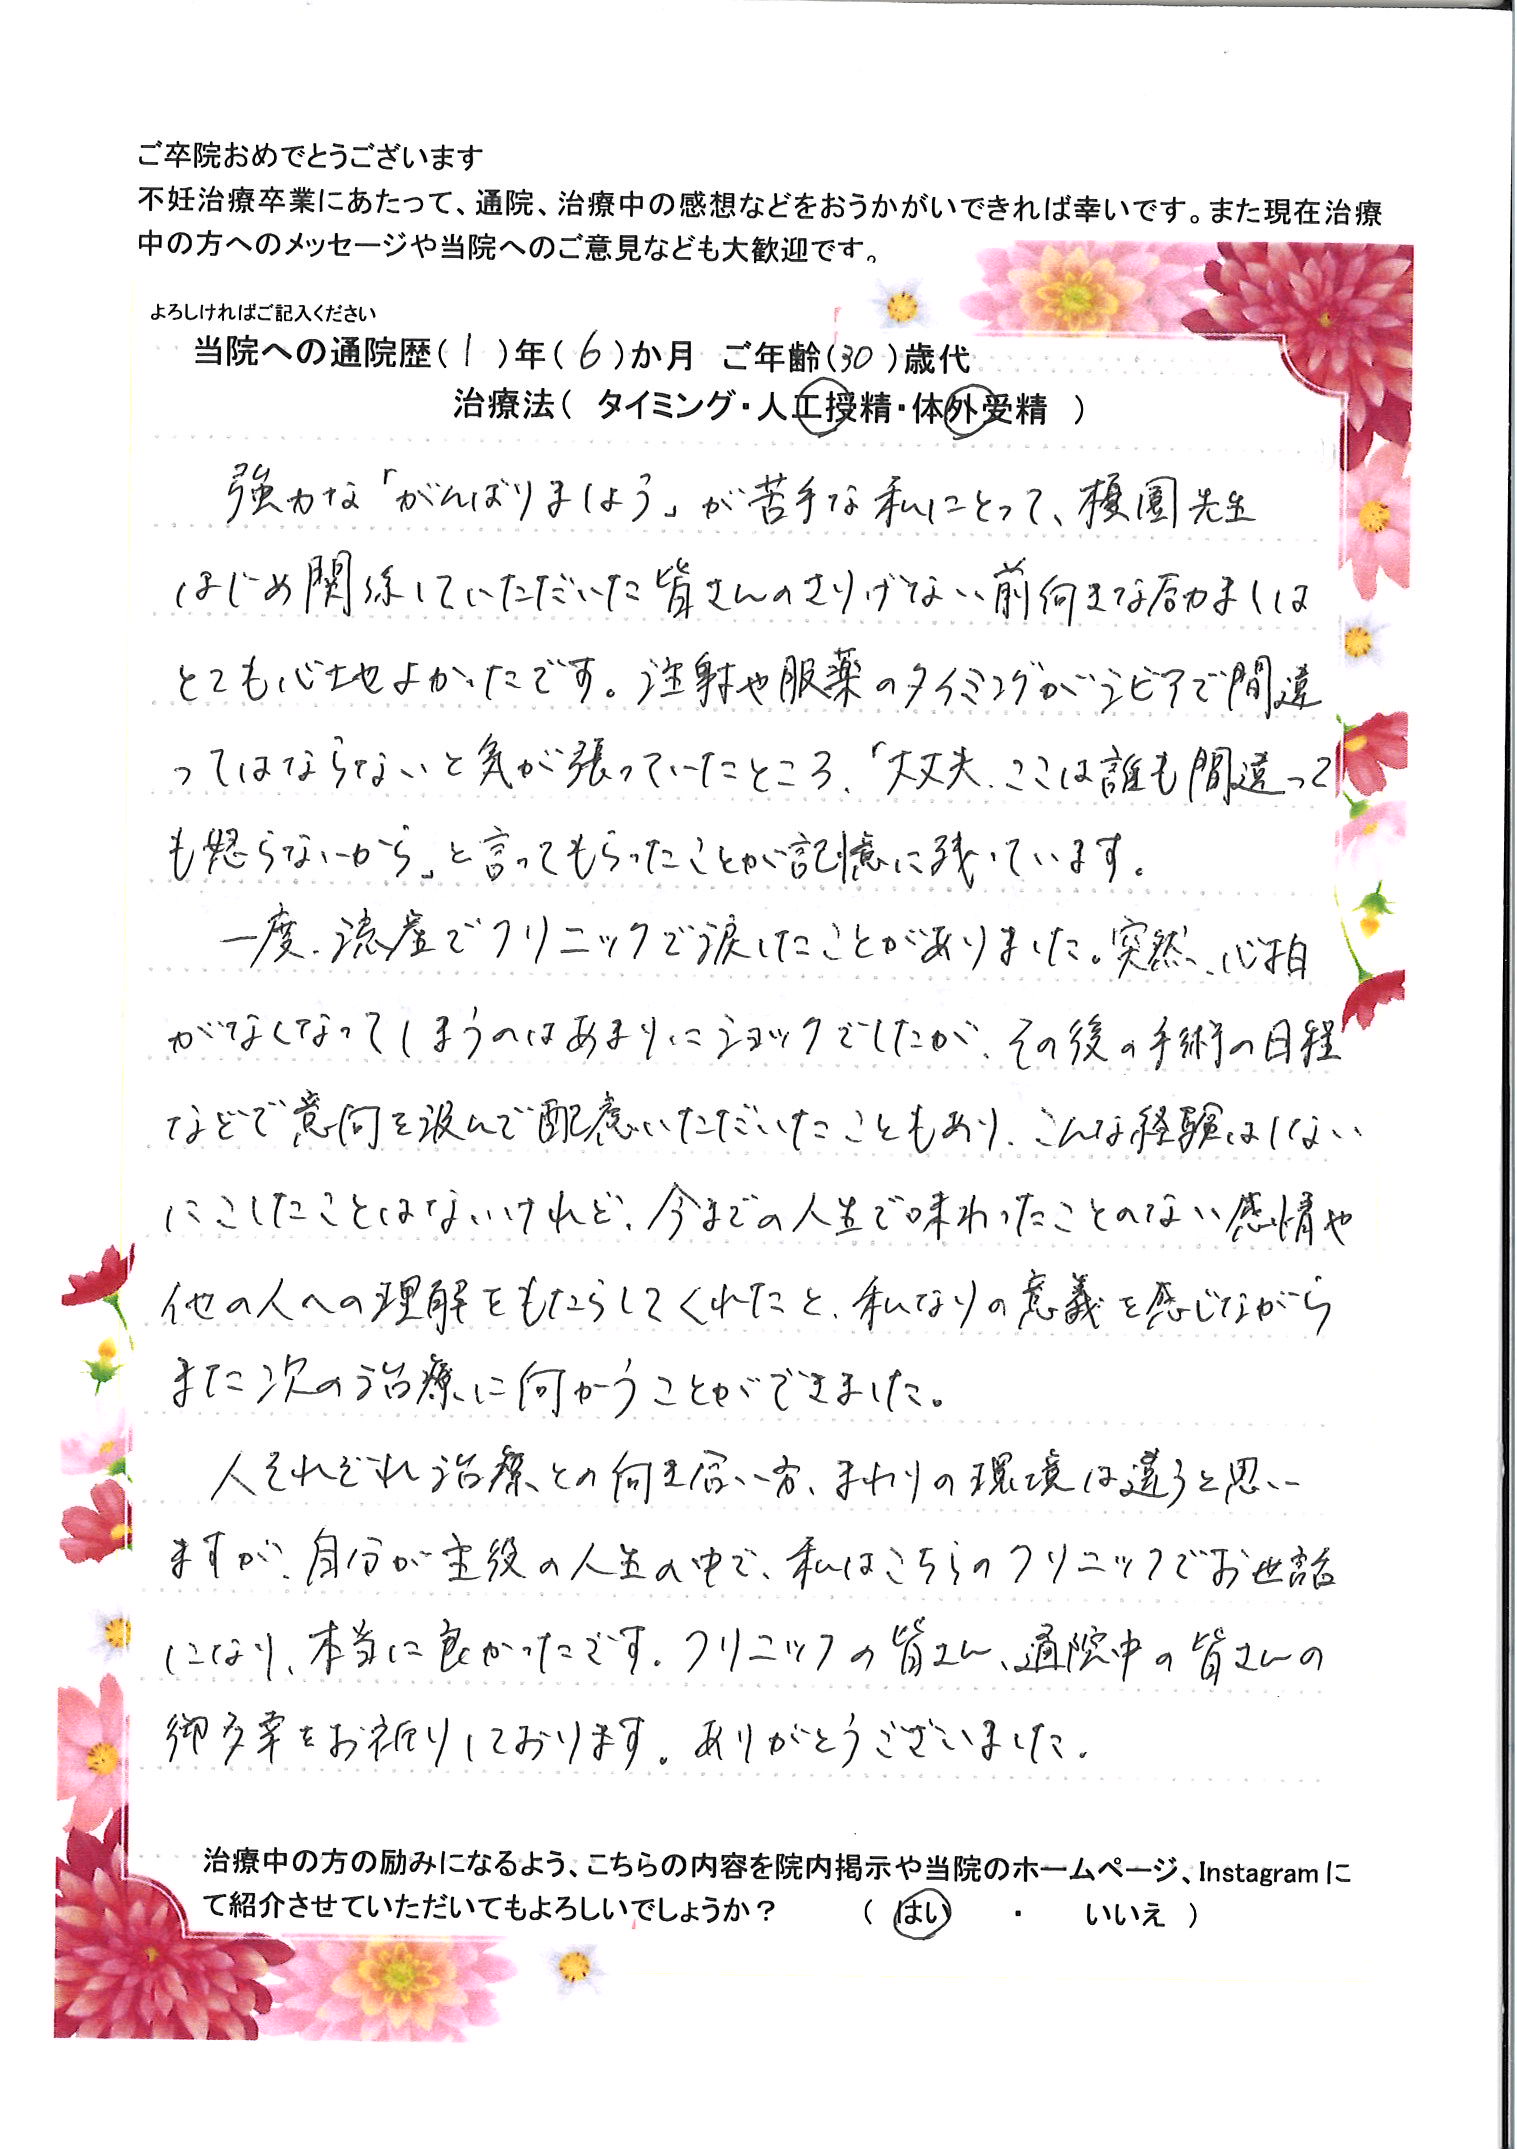 ご卒院おめでとうございます
不妊治療卒業にあたって、通院、治療中の感想などをおうかがいできれば幸いです。また現在治療
中の方へのメッセージや当院へのご意見なども大歓迎です。
よろしければご記入ください
当院への通院歴(1)年(6)か月 ご年齢(30)歳代
治療法( タイミング・人工授精・体外受精 )
強力な「がんばりましょう」が苦手な私にとって、榎園先生
はじめ関係していただいた皆さんのさりげない前向きな励ましは
とても心地よかったです。注射や服薬のタイミングがシビアで間違
ってはならないと気が張っていたところ、「大丈夫、ここは誰も間違って
も怒らないから」と言ってもらったことが記憶に残っています。
一度、流産でクリニックで涙したことがありました。突然、心拍
がなくなってしまうのはあまりにショックでしたが、その後の手術の日程
などで意向を汲んで配慮いただいたこともあり、こんな経験はしない
にこしたことはないけれど、今までの人生で味わったことのない感情や
他の人への理解をもたらしてくれたと、私なりの意義を感じながら
また次の治療に向かうことができました。
人それぞれ治療との向き合い方、まわりの環境は違うと思い
ますが、自分が主役の人生の中で、私はこちらのクリニックでお世話
になり、本当に良かったです。クリニックの皆さん、通院中の皆さんの
御多幸をお祈りしております。ありがとうございました。
治療中の方の励みになるよう、こちらの内容を院内掲示や当院のホームページ、Instagramに
て紹介させていただいてもよろしいでしょうか? ( はい ・ いいえ )